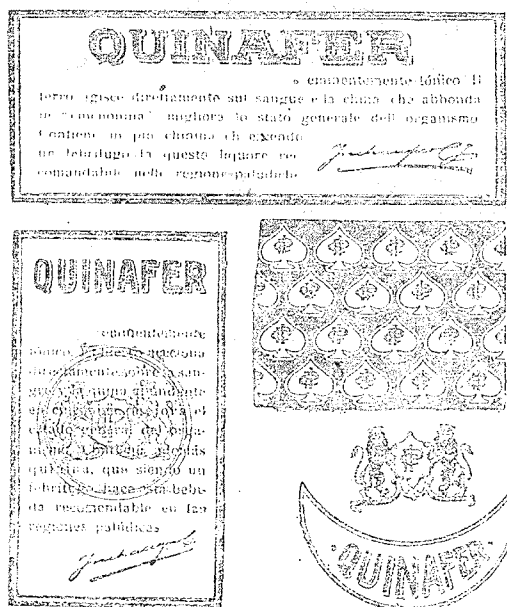 QUINAFER
eminentemente tónico Il
ferro agisce direttamente sul sangue e la china che abbonda
in "cinconina" migliora lo stato generale dell organismo
Contiene in più chinina ch essendo
un febrifugo fa questo liquore rac
comandabile nelle regione paludiche
QUINAFER
eminentemente
tónico
directamente sobre la san-
gre y la quina abundante
en el
estado general del orga-
nismo Contiene además
quinina, que siendo un
febrifugo hace esta bebi-
da recomendable en las
regiones palúdicas
QUINAFER